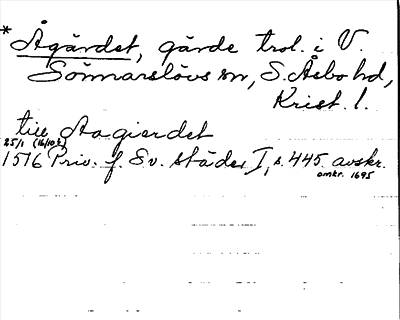 * Ågärdet, gärde trol. i V.
Sönnarslövs sn, S. Åsbo hd,
Krist. l.
till Aagierdet
25/1 (16/10?)
1516 Priv. f. Sv. städer I, s. 445. avskr.
omkr. 1695